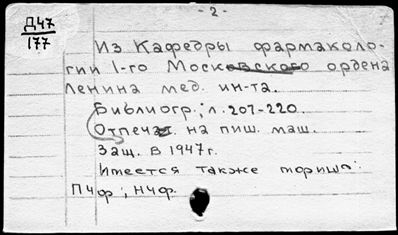 - 2 -
Д47
177
Из Кафедры фармаколо-
гии 1-го Московского ордена
Ленина мед. ин-та.
Библиогр.; л. 207-220
Отпечат. на пиш. маш.
Защ. в 1947г.
Имеется также
Пчф; Нчф.